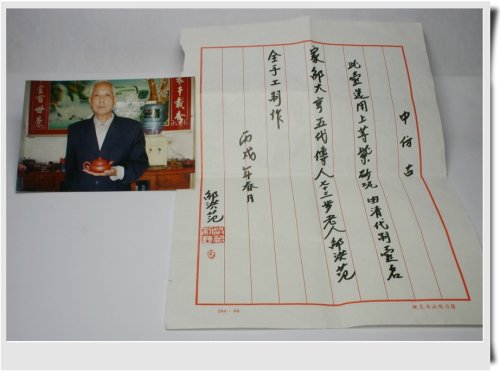 中仿古
此壶选用上等紫砂泥由清代制壶名
家邵大亨五代傳人三步老人邵洪范
全手工制作
丙戌年春月
邵洪范